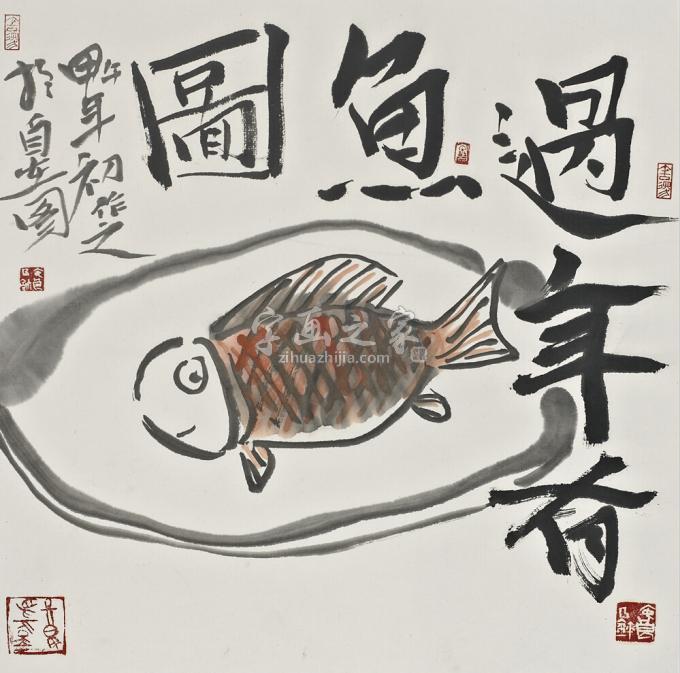 過年有
魚
圖
甲午年初作之
於自在園
字画之家
zihuazhijia.com